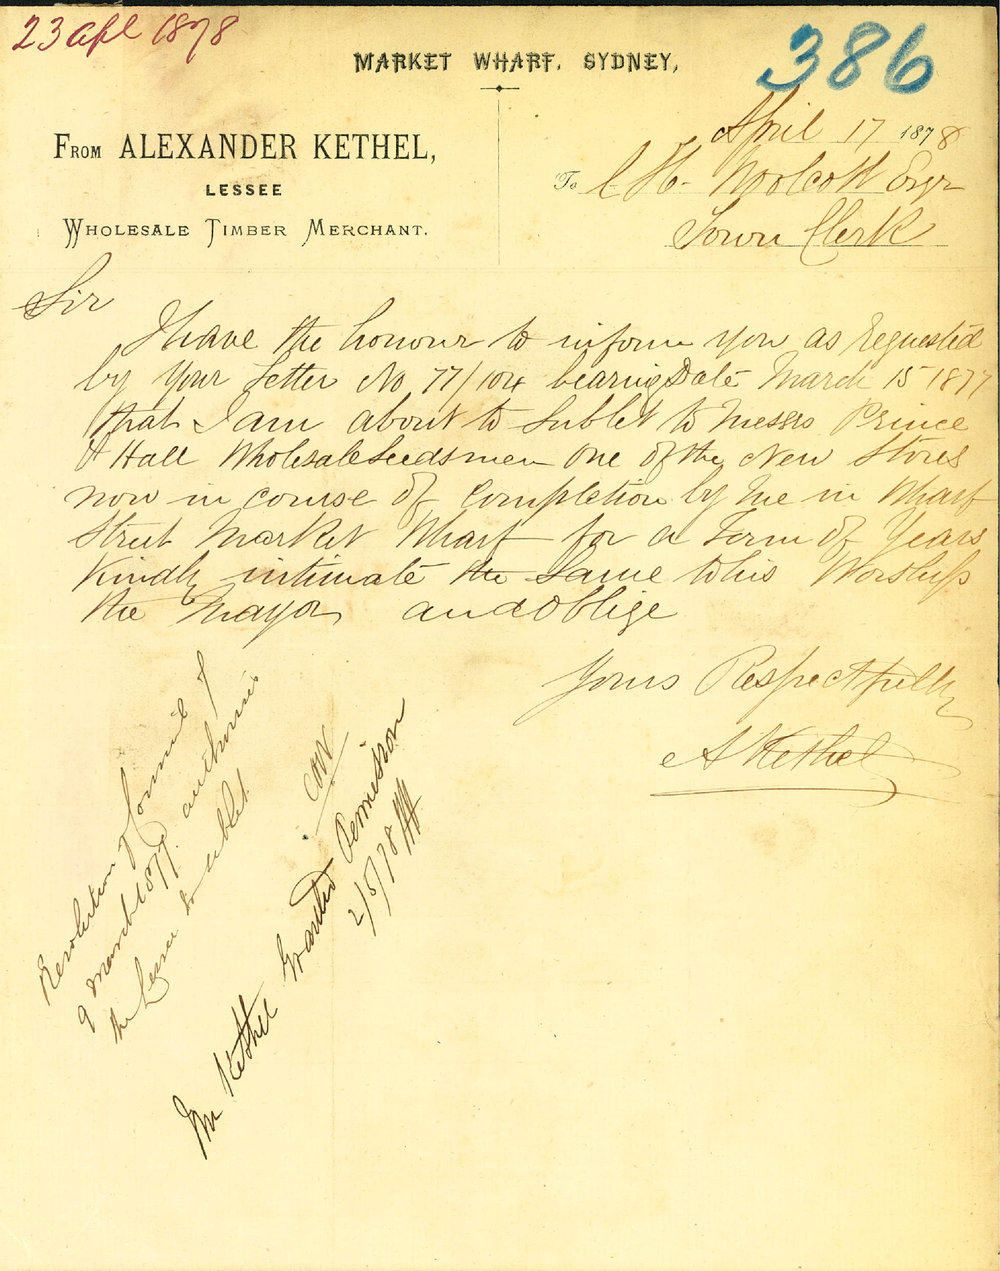 23 Apl 1878
386
MARKET WHARF, SYDNEY,
FROM ALEXANDER KETHEL,
LESSEE
WHOLESALE TIMBER MERCHANT.
April 17 1878
To C. H. Woolcott Esqr
Town Clerk
Sir
I have the honour to inform you as Requested
by Your Letter No 77/104 bearing Date March 15 1877
that I am about to Sublet to Messrs Prince
& Hall Wholesale Seedsmen One of the New Stores
now in course of Completion by Me in Wharf
Street Market Wharf for a Term of Years
Kindly intimate the Same to his Worship
the Mayor and Oblige
Yours Respectfully
A Kethel
Resolution of Council of
9 March 1877 authorising
the Lessee to sublet
CHW
Mr Kethel Granted Permission
2/5/78